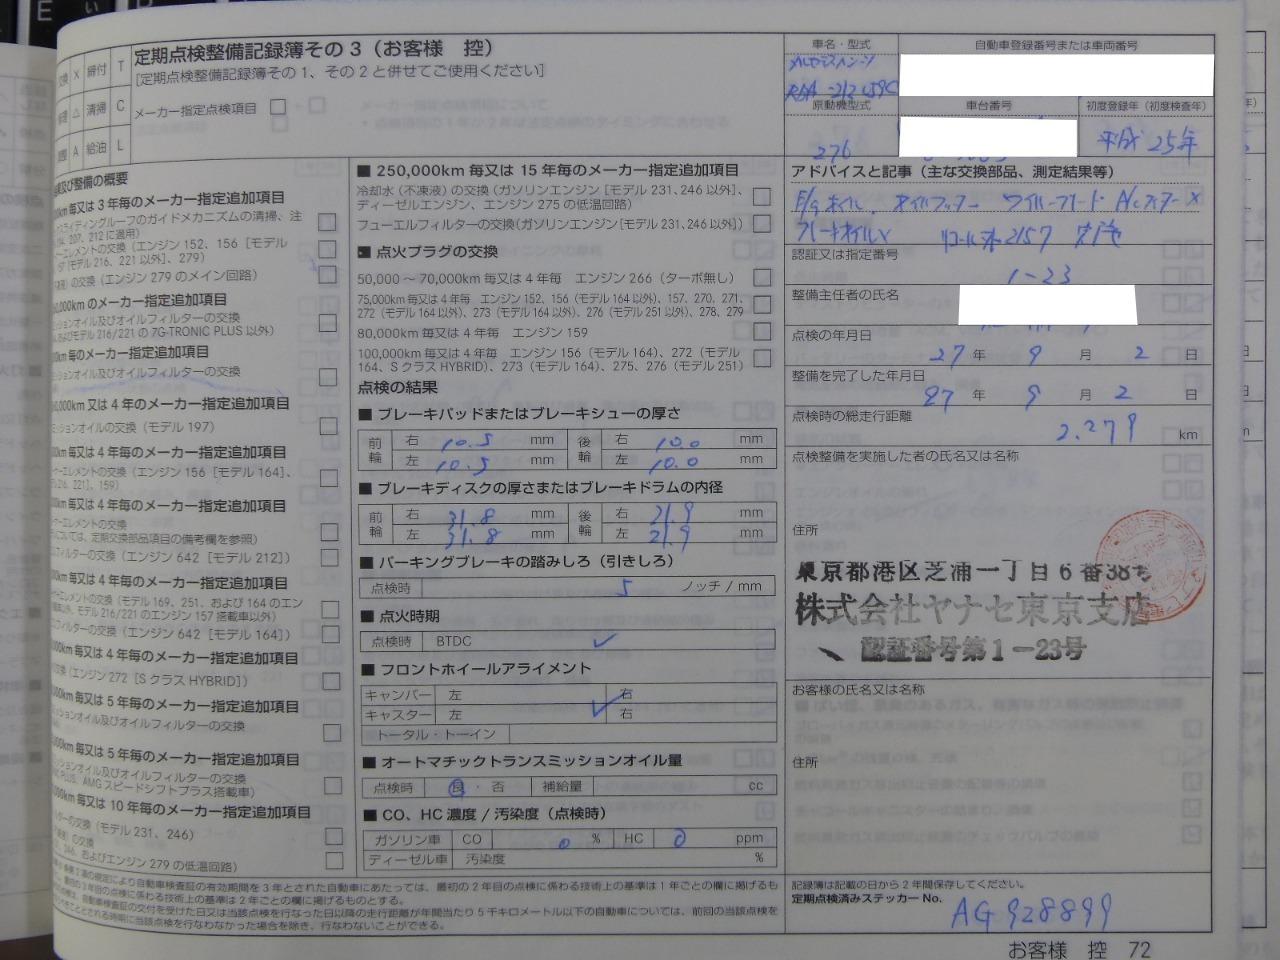 交換 × 締付 T
△ 清掃 C
A 給油 L
定期点検整備記録簿その3(お客様 控)
[定期点検整備記録簿その1、その2と併せてご使用ください]
メーカー指定点検項目
車名・型式
自動車登録番号または車両番号
原動機型式
車台番号
初度登録年(初度検査年)
276
平成25年
整備の概要
毎又は3年毎のメーカー指定追加項目
ライディングルーフのガイドメカニズムの清掃、注
207、212に適用)
エレメントの交換(エンジン152、156[モデル
[モデル216、221以外]、279)
の交換(エンジン279のメイン回路)
kmのメーカー指定追加項目
ミッションオイル及びオイルフィルターの交換
およびモデル216/221の7G-TRONIC PLUS以外)
km毎のメーカー指定追加項目
ミッションオイル及びオイルフィルターの交換
km又は4年毎のメーカー指定追加項目
ミッションオイルの交換(モデル197)
km毎又は4年毎のメーカー指定追加項目
エレメントの交換(エンジン156[モデル164]、
216、221]、159)
km毎又は4年毎のメーカー指定追加項目
エレメントの交換
については、定期交換部品項目の備考欄を参照)
フィルターの交換(エンジン642[モデル212])
km毎又は4年毎のメーカー指定追加項目
エレメントの交換(モデル169、251、および164のエン
以外、モデル216/221のエンジン157搭載車以外)
フィルターの交換(エンジン642[モデル164])
km毎又は4年毎のメーカー指定追加項目
交換(エンジン272[SクラスHYBRID])
km毎又は5年毎のメーカー指定追加項目
ミッションオイル及びオイルフィルターの交換
km毎又は5年毎のメーカー指定追加項目
ミッションオイル及びオイルフィルターの交換
PLUS、AMGスピードシフトプラス搭載車)
km毎又は10年毎のメーカー指定追加項目
ターの交換(モデル231、246)
の交換
246、およびエンジン279の低温回路)
■ 250,000km毎又は15年毎のメーカー指定追加項目
冷却水(不凍液)の交換(ガソリンエンジン[モデル231、246以外]、
ディーゼルエンジン、エンジン275の低温回路)
フューエルフィルターの交換(ガソリンエンジン[モデル231、246以外])
■ 点火プラグの交換
50,000～70,000km毎又は4年毎 エンジン266(ターボ無し)
75,000km毎又は4年毎 エンジン152、156(モデル164以外)、157、270、271、
272(モデル164以外)、273(モデル164以外)、276(モデル251以外)、278、279
80,000km毎又は4年毎 エンジン159
100,000km毎又は4年毎 エンジン156(モデル164)、272(モデル
164、SクラスHYBRID)、273(モデル164)、275、276(モデル251)
点検の結果
■ ブレーキパッドまたはブレーキシューの厚さ
前輪 右 10.5 mm 後輪 右 10.0 mm
左 10.5 mm 左 10.0 mm
■ ブレーキディスクの厚さまたはブレーキドラムの内径
前輪 右 31.8 mm 後輪 右 21.9 mm
左 31.8 mm 左 21.9 mm
■ パーキングブレーキの踏みしろ(引きしろ)
点検時 5 ノッチ/mm
■ 点火時期
点検時 BTDC ✓
■ フロントホイールアライメント
キャンバー 左 右
キャスター 左 ✓ 右
トータル・トーイン
■ オートマチックトランスミッションオイル量
点検時 良・否 補給量 cc
■ CO、HC濃度/汚染度(点検時)
ガソリン車 CO 0 % HC 0 ppm
ディーゼル車 汚染度 %
アドバイスと記事(主な交換部品、測定結果等)
E/gオイル、オイルフィルター ワイパーブレード A/Cフィルター ×
ブレーキオイル×
認証又は指定番号
1-23
整備主任者の氏名
点検の年月日
27年 9月 2日
整備を完了した年月日
27年 9月 2日
点検時の総走行距離
2,279 km
点検整備を実施した者の氏名又は名称
住所
東京都港区芝浦一丁目6番38号
株式会社ヤナセ東京支店
認証番号第1-23号
お客様の氏名又は名称
住所
記録簿は記載の日から2年間保存してください。
定期点検済みステッカーNo.
AG928899
の規定により自動車検査証の有効期間を3年とされた自動車にあたっては、最初の2年目の点検に係わる技術上の基準は1年ごとの欄に掲げるも
目の点検に係わる技術上の基準は2年ごとの欄に掲げるものとする。
自動車検査証の交付を受けた日又は当該点検を行なった日以降の走行距離が年間当たり5千キロメートル以下の自動車については、前回の当該点検を
こととされる時期に当該点検を行なわなかった場合を除き、行なわないことができる。
お客様 控 72